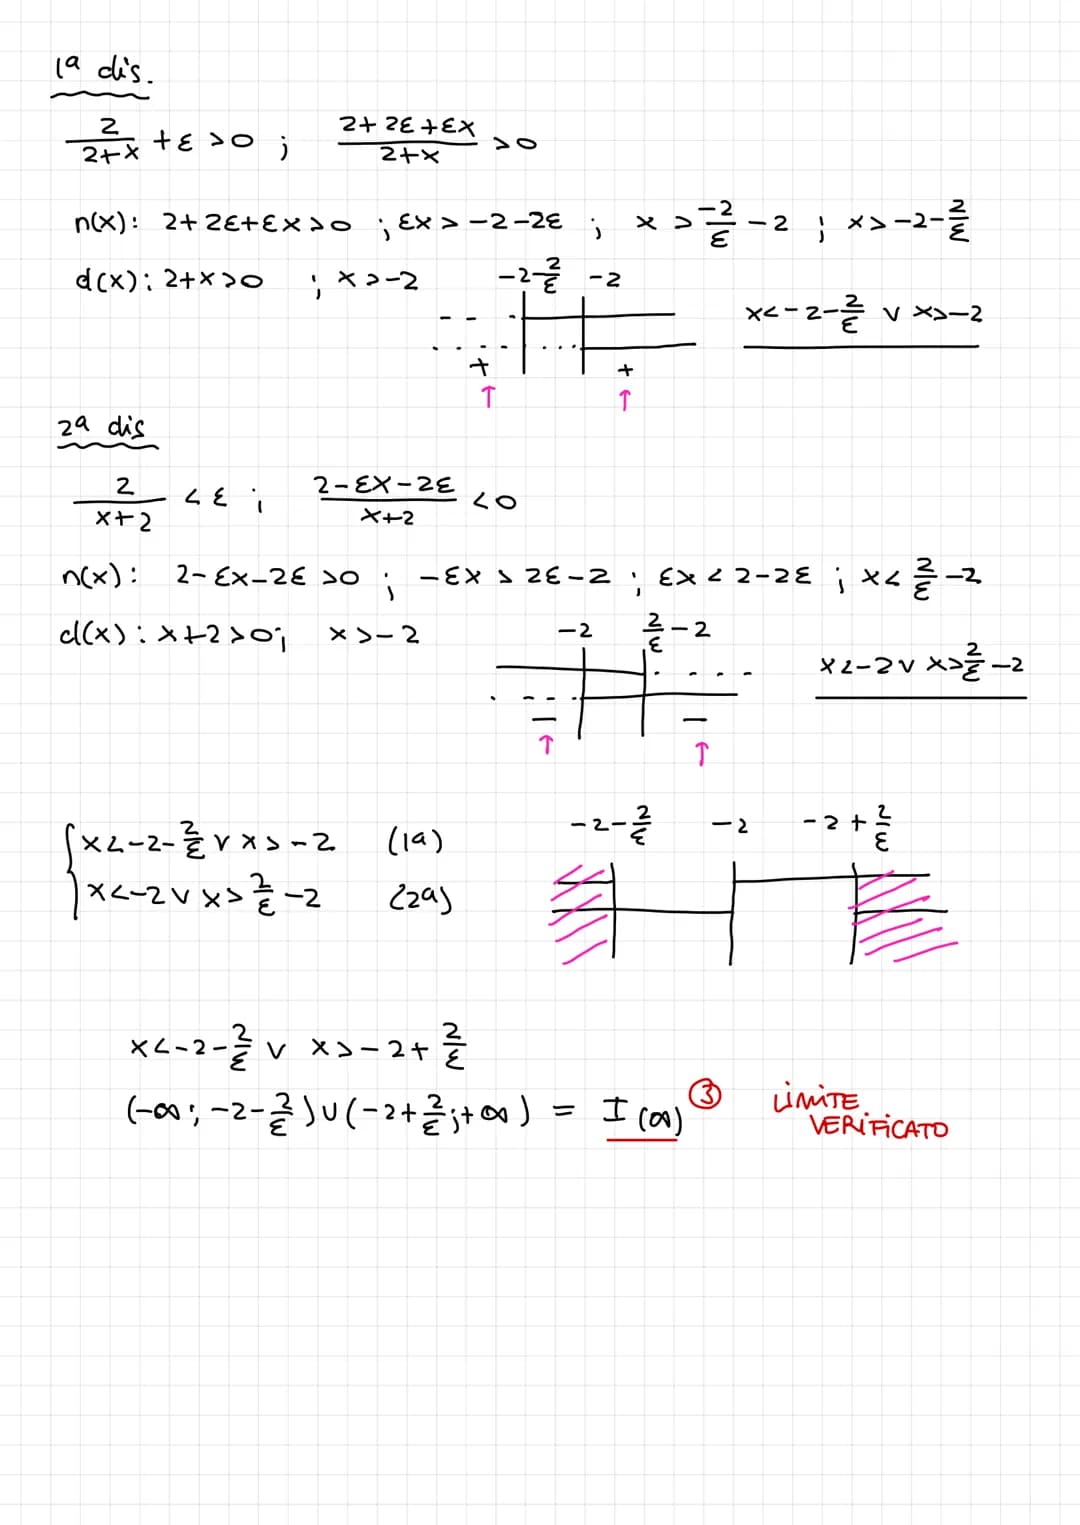 1ª dis.
2/(2+x) + ε > 0 ; (2+2ε+εx)/(2+x) > 0
n(x): 2+2ε+εx>0 ; εx > -2-2ε ; x > -2/ε - 2 ; x > -2-2/ε
d(x): 2+x>0 ; x>-2
-2-2/ε -2
+ +
↑ ↑
x<-2-2/ε ∨ x>-2
2ª dis
2/(x+2) < ε ; (2-εx-2ε)/(x+2) < 0
n(x): 2-εx-2ε >0 ; -εx > 2ε-2 ; εx < 2-2ε ; x < 2/ε -2
d(x): x+2>0; x>-2
-2 2/ε-2
- -
↑ ↑
x<-2 ∨ x>2/ε-2
{ x<-2-2/ε ∨ x>-2 (1ª)
x<-2 ∨ x>2/ε-2 (2ª)
-2-2/ε -2 -2+2/ε
x<-2-2/ε ∨ x>-2+2/ε
(-∞; -2-2/ε) ∪ (-2+2/ε; +∞) = I(∞) ③ LIMITE
VERIFICATO